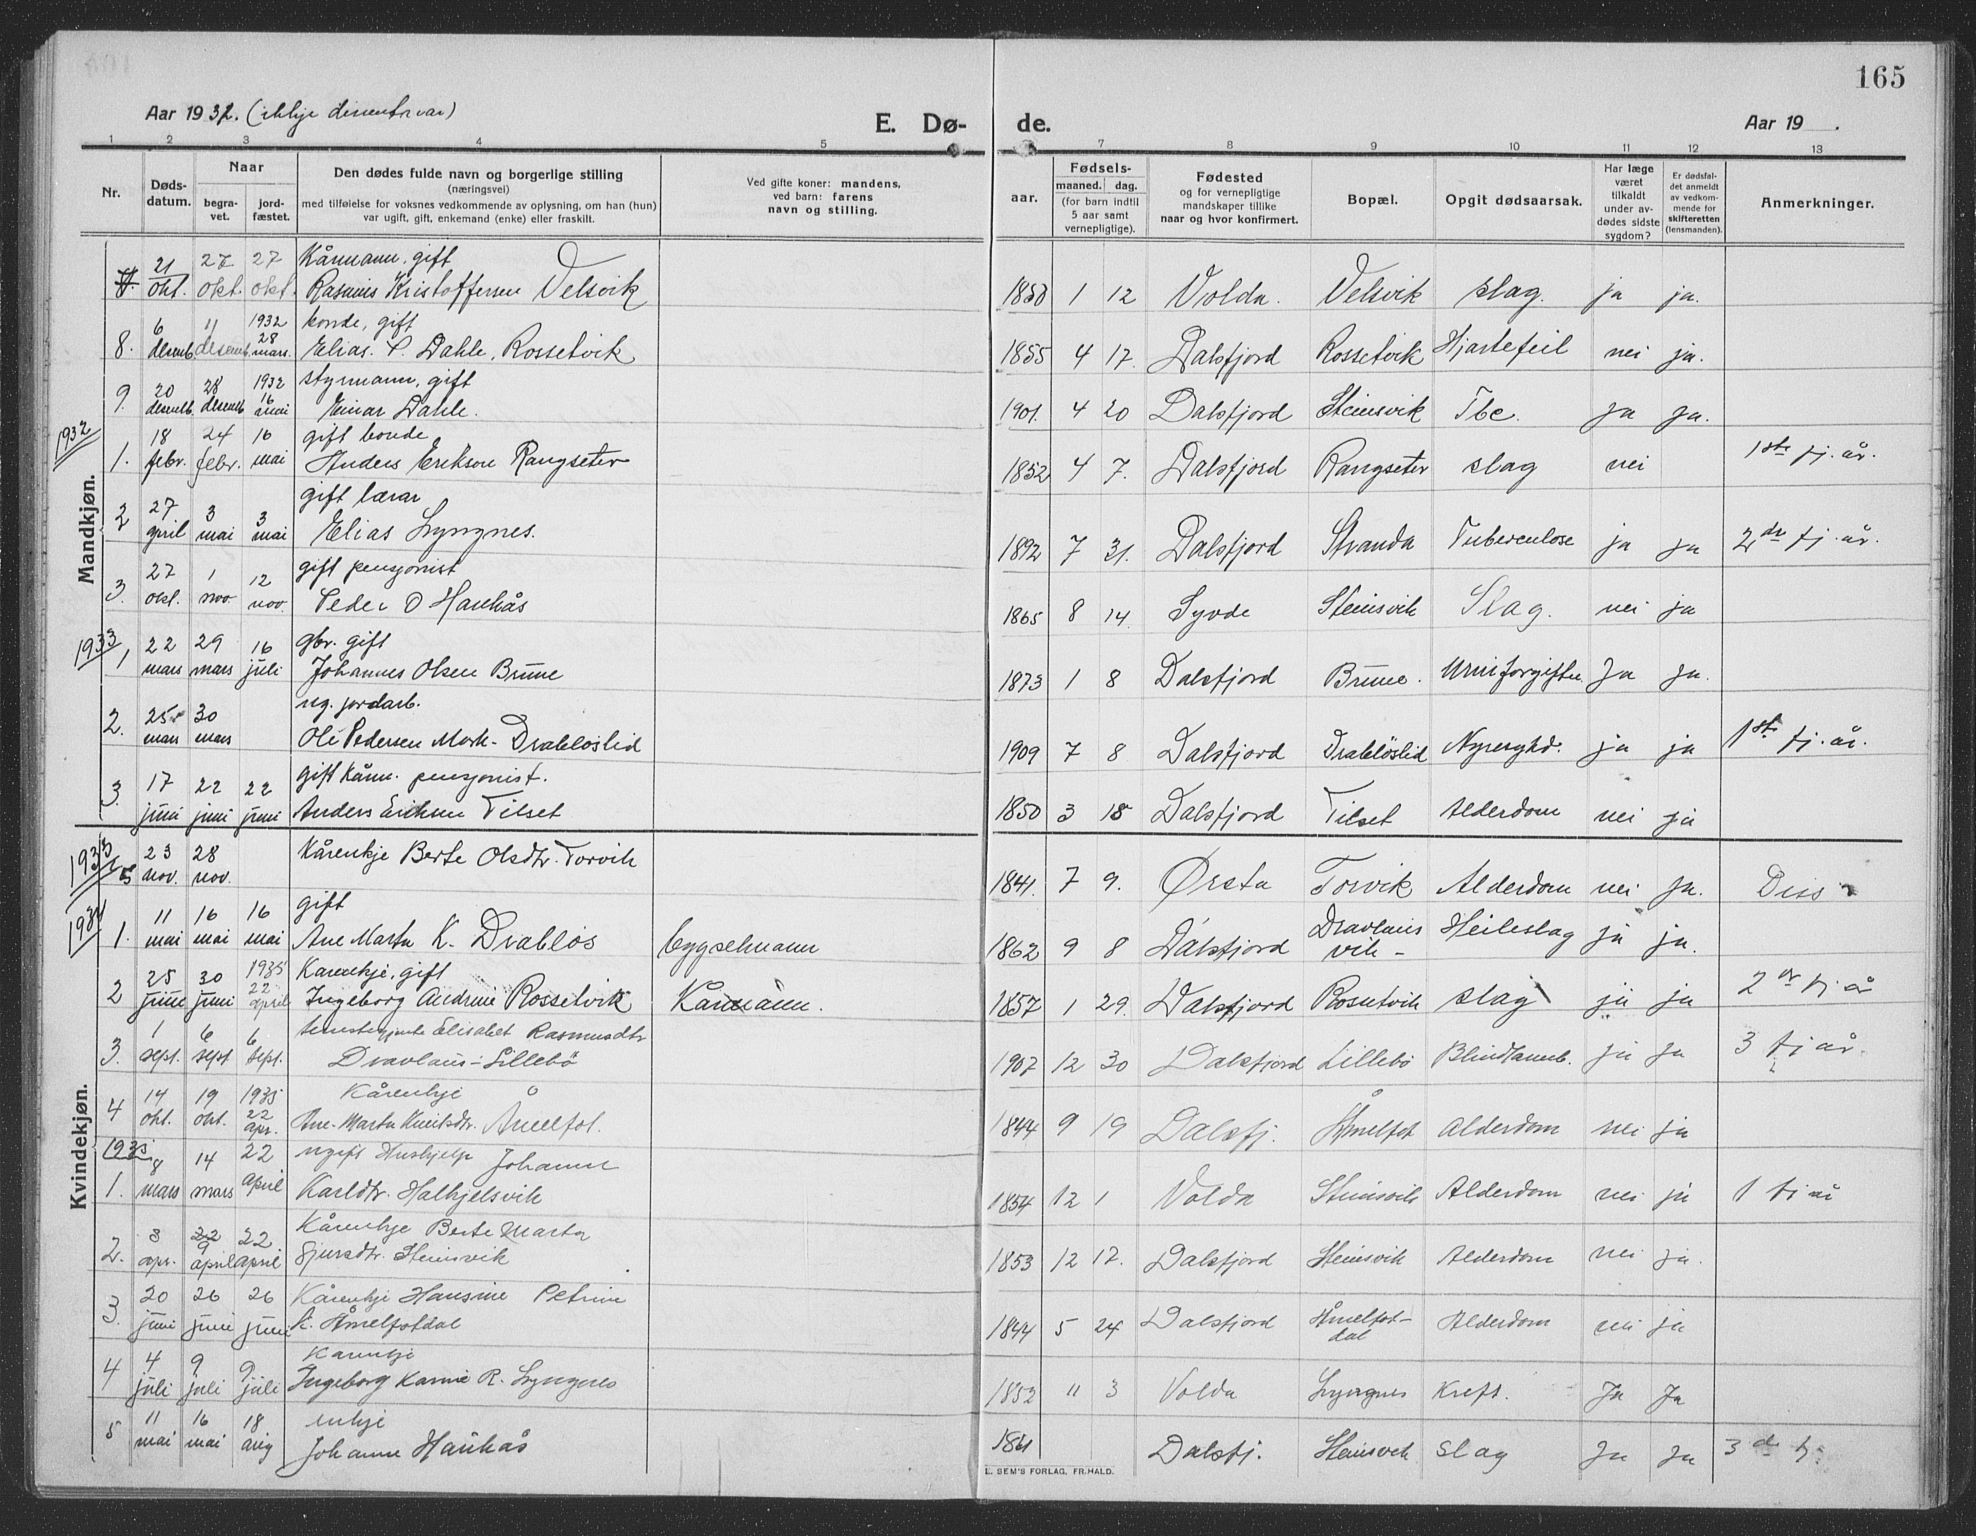 165
Aar 1932. (ikkje disentarar)
E. Dø- de.
Aar 19 .
1 2 3 4 5 7 8 9 10 11 12 13
Nr.
Døds-
datum.
Naar
begra-
vet.
jord-
fæstet.
Den dødes fulde navn og borgerlige stilling
(næringsvei)
med tilføielse for voksnes vedkommende av oplysning, om han (hun)
var ugift, gift, enkemand (enke) eller fraskilt.
Ved gifte koner: mandens,
ved barn: farens
navn og stilling.
aar.
Fødsels-
maaned. dag.
(for barn indtil
5 aar samt
vernepligtige).
Fødested
og for vernepligtige
mandskaper tillike
naar og hvor konfirmert.
Bopæl.
Opgit dødsaarsak.
Har læge
været
tilkaldt
under av-
dødes sidste
sygdom?
Er dødsfal-
det anmeldt
av vedkom-
mende for
skifteretten
(lensmanden).
Anmerkninger.
Mandkjøn.
21 27 27 Kårmann, gift
okt. okt. okt. Rasmus Kristoffersen Velsvik 1850 1 12 Volda. Velsvik slag. ja ja.
6 11 1932 bonde, gift
8. desemb. desemb. 28 mars. Elias P. Dahle, Rossetvik 1855 4 17. Dalsfjord Rossetvik Hjartefeil nei ja.
20 28 1932 styrmann, gift
9. desemb. desemb. 16 mai Einar Dahle. 1901. 4 20 Dalsfjord Steinsvik Tbc. ja ja.
1932
18 24 16 gift bonde
1. febr. febr. mai Anders Erikson Rangseter 1852 4 7. Dalsfjord Rangseter slag nei 1ste tj. år.
27 3 3 gift lærar
2 april mai mai Elias Lyngnes. 1892 7 31. Dalsfjord Stranda Tuberculose ja ja 2dre tj. år.
27 1 12 gift pensjonist
3. okt. nov. nov. Peder O Haukås 1865 8 14. Syvde Steinsvik Slag. nei ja
1933
22 29 16 gbr. gift
1 mars mars juli Johannes Olsen Brune 1873 1 8 Dalsfjord Brune. Urinforgiftn. Ja Ja.
25 30 ug. jordarb.
2. mars mars Ole Pedersen Mork- Drabløslid 1909 7 8 Dalsfjord Drabløslid ja ja 1ste tj. år.
17 22 22 gift Kårm. pensjonist.
3. juni juni juni Anders Eriksen Tilset 1850 3 18 Dalsfjord Tilset Alderdom nei ja
Kvindekjøn.
1933
23 28 Kårenkje Berte Olsdtr. Torvik
5 nov. nov. 1841. 7 9. Ørsta Torvik Alderdom nei ja. Diss
1934
11 16 16 gift
1. mai mai mai Ane Marta K. Drabløs bygselmann 1862 9 8 Dalsfjord Dravlaus vik - Heileslag ja ja.
25 30 1935 Kårenkje, gift
2 juni juni 22 april Ingeborg Andrine Rossetvik Kårmann. 1857 1 29. Dalsfjord Rossetvik slag ja ja 2dr tj år
1 6 6 Elisabet Rasmusdtr
3. sept. sept sept. Dravlaus-Lillebø 1907 12 30 Dalsfjord Lillebø Blindtarmb. ja ja 3 tj år.
14 19 1935 Kårenkje
4 okt. okt. 22 apr. Ane-Marta Knutsdtr. Åmelfot. 1844 9 19 Dalsfj. Åmelfot Alderdom nei ja
1935
8 14 22 ugift Hushjelp Johanne
1. mars mars april Karldtr. Halkjelsvik 1854 12 1 Volda Steinsvik Alderdom nei ja 1 tj år
3 22 22 Kårenkje Berte Marta
2. apr. 9 april april Sjursdtr. Steinsvik 1853 12 17. Dalsfjord Steinsvik Alderdom nei ja.
20 26 26 Kårenkje Hansine Petrine
3. juni juni juni K. Åmelfotdal 1844 5 24 Dalsfjord Åmelfot- dal Alderdom nei ja
4 9 9 Kårenkje
4 juli juli juli Ingeborg Karine R. Lyngnes 1852 11 3 Volda Lyngnes Kreft. Ja Ja
11 16 18 enkje
5 mai mai aug Johanne Haukås 1861 Dalsfj. Steinsvik Slag Ja Ja 3de tj.
E. SEM'S FORLAG, FR.HALD.